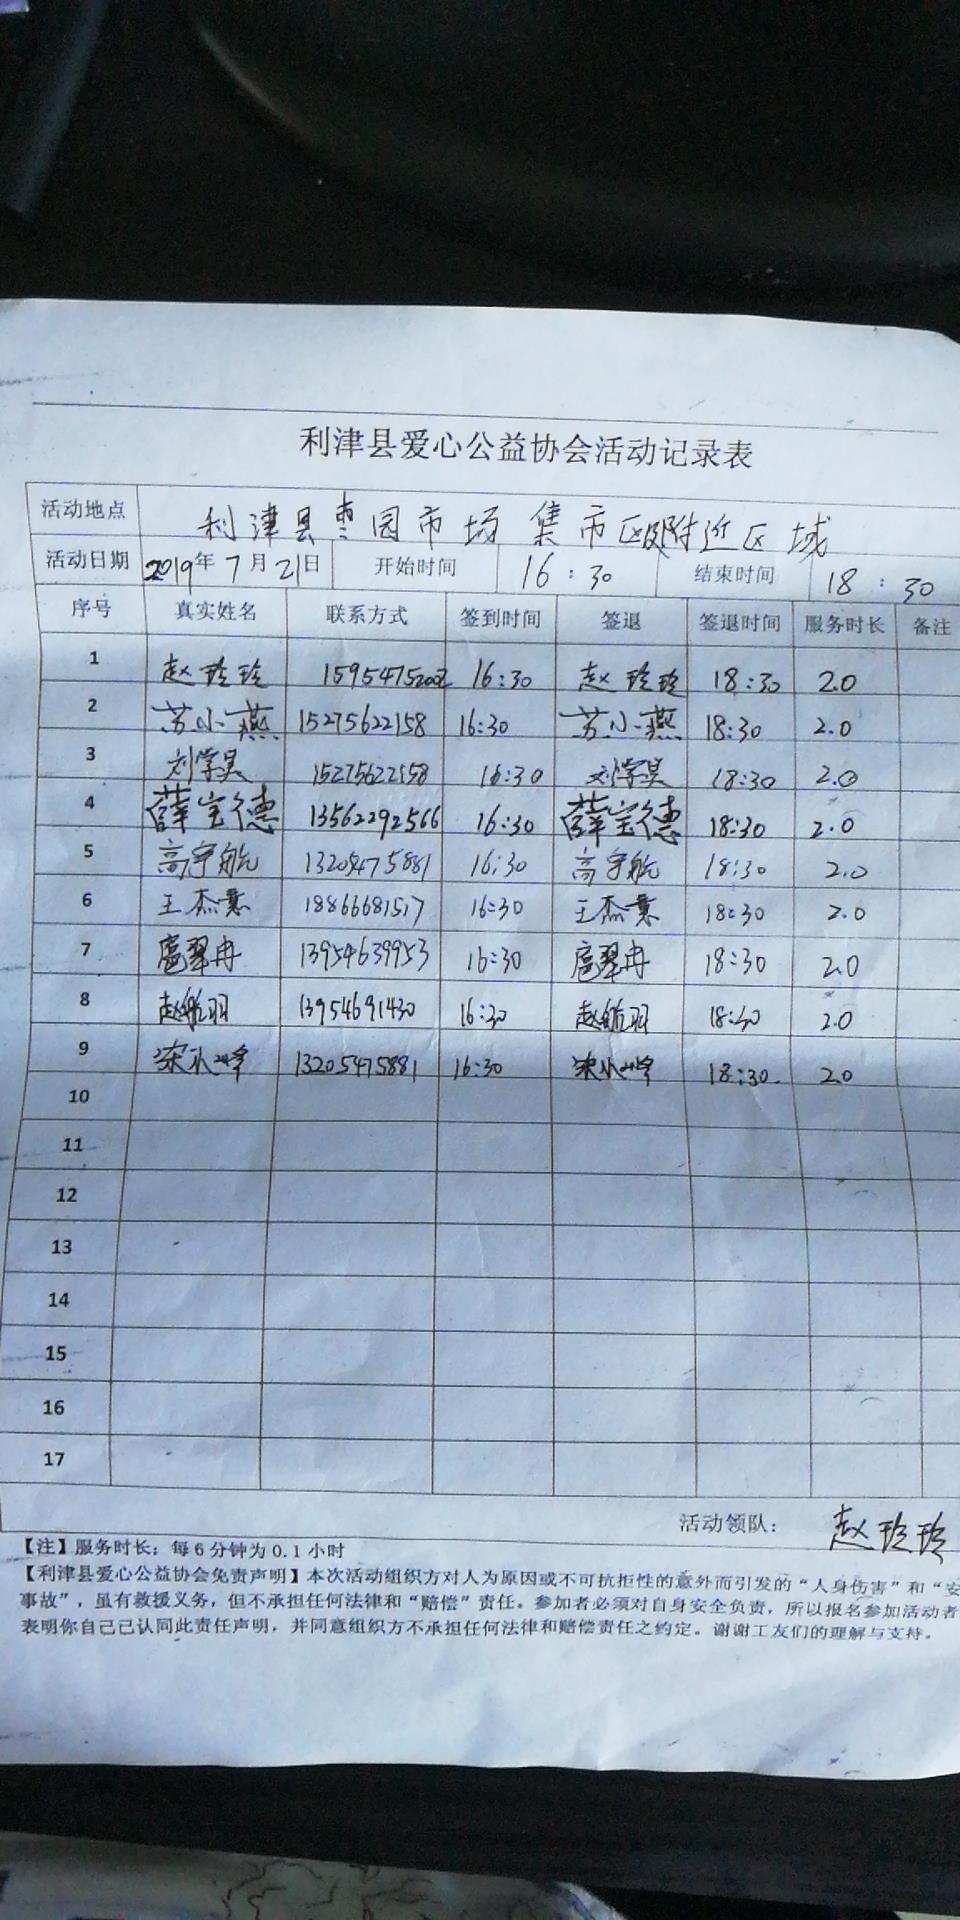 利津县爱心公益协会活动记录表
活动地点 利津县枣园市场 集市区附近区域
活动日期 2019年7月21日 开始时间 16:30 结束时间 18:30
序号 真实姓名 联系方式 签到时间 签退 签退时间 服务时长 备注
1 赵玲玲 16:30 赵玲玲 18:30 2.0
2 苏小燕 15275622158 16:30 苏小燕 18:30 2.0
3 刘学昊 15275622158 16:30 刘学昊 18:30 2.0
4 薛宝德 13562292566 16:30 薛宝德 18:30 2.0
5 高宇航 13205475881 16:30 高宇航 18:30 2.0
6 王杰 18866681517 16:30 王杰 18:30 2.0
7 扈翠冉 13954639953 16:30 扈翠冉 18:30 2.0
8 赵航羽 13954691430 16:30 赵航羽 18:30 2.0
9 13205475881 16:30 18:30 2.0
10
11
12
13
14
15
16
17
活动领队： 赵玲玲
【注】服务时长：每6分钟为0.1小时
【利津县爱心公益协会免责声明】本次活动组织方对人为原因或不可抗拒性的意外而引发的“人身伤害”和“安
事故”，虽有救援义务，但不承担任何法律和“赔偿”责任。参加者必须对自身安全负责，所以报名参加活动者
表明你自己已认同此责任声明，并同意组织方不承担任何法律和赔偿责任之约定。谢谢工友们的理解与支持。